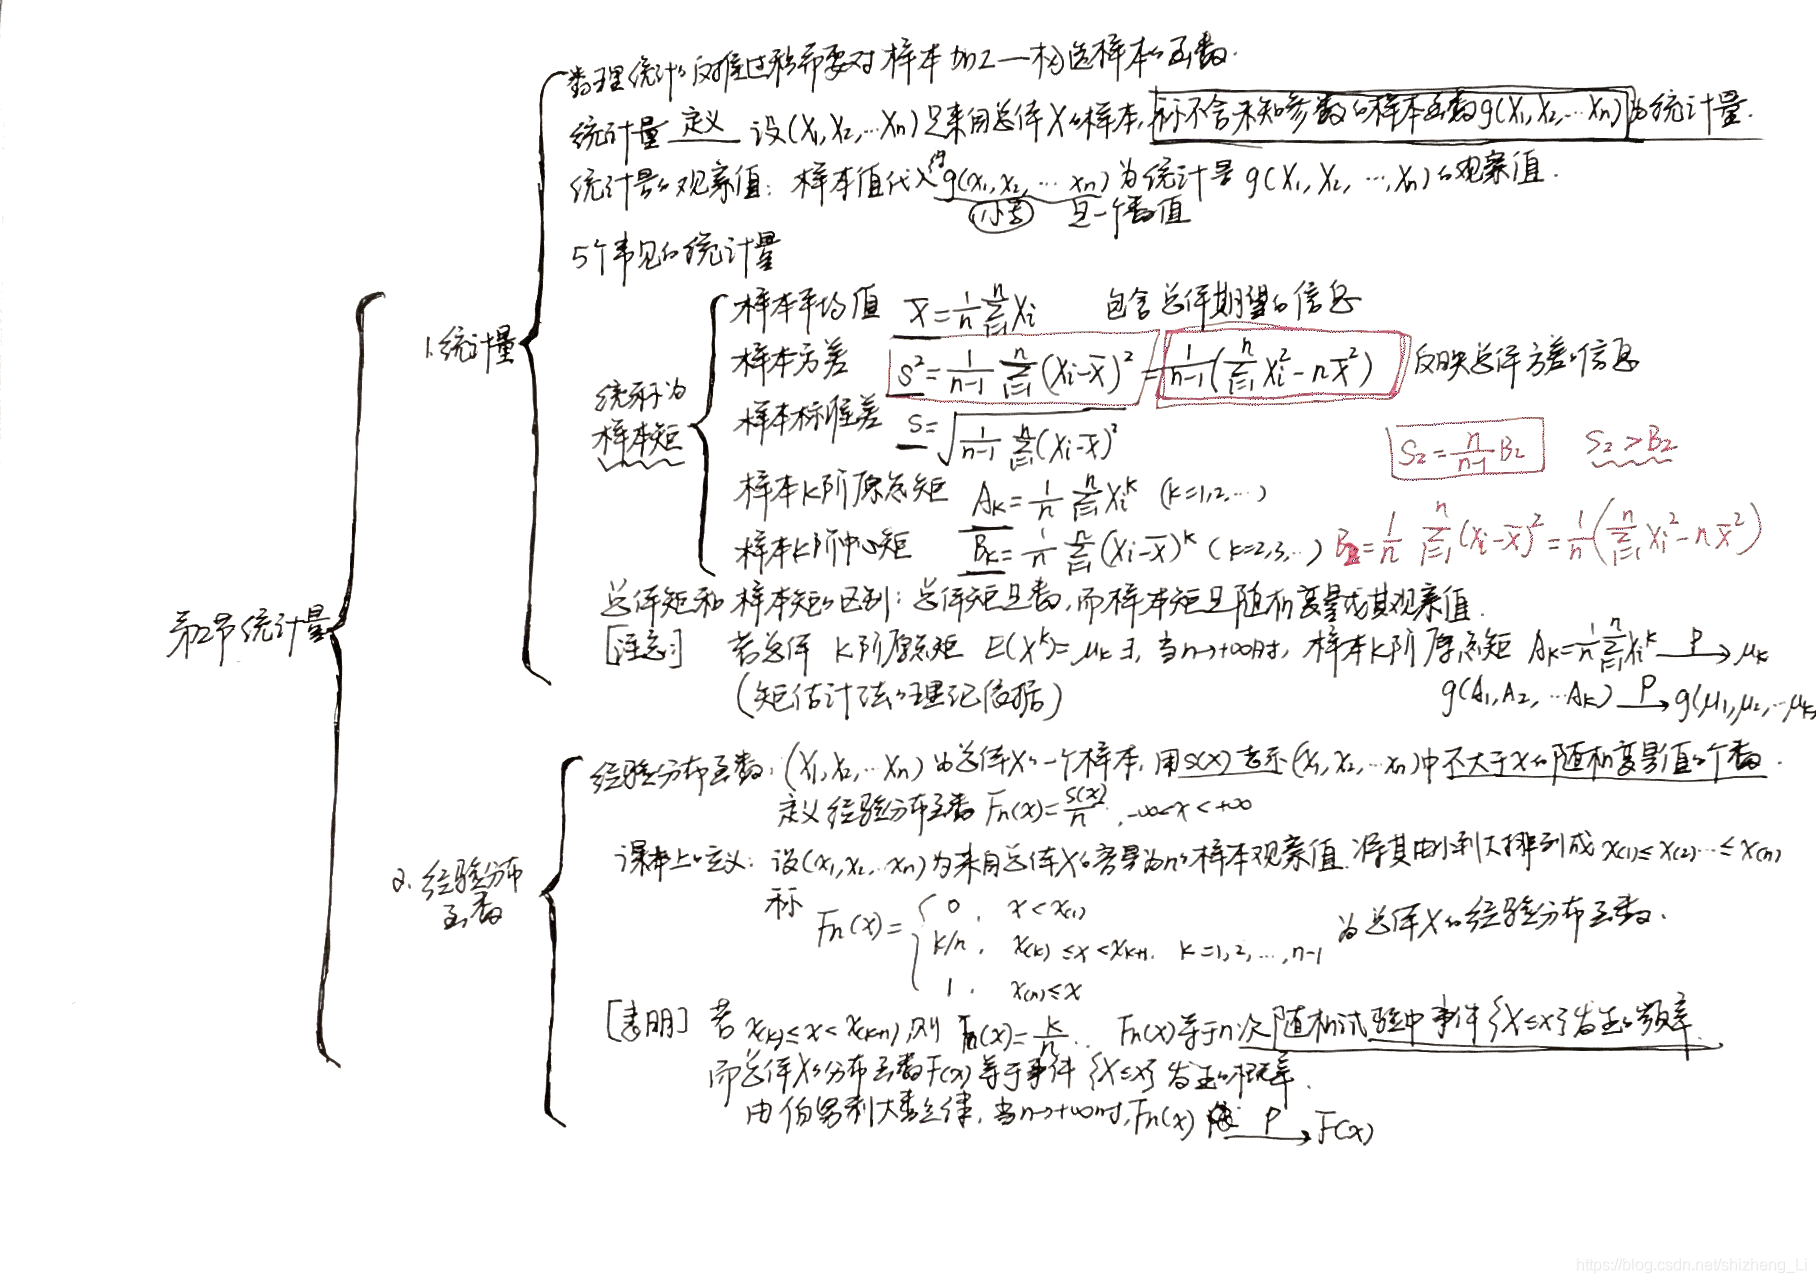 数理统计的反推过程需要对样本加工—构造样本的函数.
统计量 定义 设(X₁,X₂,…Xn)是来自总体X的样本,称不含未知参数的样本函数g(X₁,X₂,…Xn)为统计量.
统计量的观察值: 样本值代入的g(x₁,x₂,…xn)为统计量g(X₁,X₂,…,Xn)的观察值.
小写 是一个数值
5个常见的统计量
样本平均值 X̄=1/n ∑ᵢ₌₁ⁿ Xi 包含总体期望的信息
1.统计量
样本方差 S²=1/(n-1) ∑ᵢ₌₁ⁿ (Xi-X̄)²=1/(n-1)(∑ᵢ₌₁ⁿ Xi²-nX̄²) 反映总体方差信息
统称为
样本矩
样本标准差 S=√(1/(n-1) ∑ᵢ₌₁ⁿ (Xi-X̄)²)
S₂=n/(n-1) B₂ S₂>B₂
样本K阶原点矩 Aₖ=1/n ∑ᵢ₌₁ⁿ Xiᵏ (k=1,2,…)
样本K阶中心矩 Bₖ=1/n ∑ᵢ₌₁ⁿ (Xi-X̄)ᵏ (k=2,3,…) B₂=1/n ∑ᵢ₌₁ⁿ (Xi-X̄)²=1/n(∑ᵢ₌₁ⁿ Xi²-nX̄²)
总体矩和样本矩的区别: 总体矩是数,而样本矩是随机变量或其观察值.
第2节统计量
[注意] 若总体K阶原点矩 E(Xᵏ)=μₖ∃,当n→+∞时, 样本K阶原点矩 Aₖ=1/n ∑ᵢ₌₁ⁿ Xiᵏ P→ μₖ
(矩估计法的理论依据) g(A₁,A₂,…Aₖ) P→ g(μ₁,μ₂,…μₖ)
经验分布函数: (X₁,X₂,…Xn)为总体X的一个样本,用S(x)表示(X₁,X₂,…Xn)中不大于x的随机变量值的个数.
定义经验分布函数 Fn(x)=S(x)/n, -∞<x<+∞
课本上的定义: 设(x₁,x₂,…xn)为来自总体X的容量为n的样本观察值.将其由小到大排列成x(1)≤x(2)…≤x(n)
2.经验分布
函数
称 Fn(x)= { 0, x<x(1)
k/n, x(k)≤x<xk+1, k=1,2,…,n-1 为总体X的经验分布函数.
1, x(n)≤x
[表明] 若x(k)≤x<x(k+1),则 Fn(x)=k/n.. Fn(x)等于n次随机试验中事件{X≤x}发生的频率.
而总体X的分布函数F(x)等于事件{X≤x}发生的概率.
由伯努利大数定律,当n→+∞时,Fn(x) P→ F(x)
https://blog.csdn.net/shizheng_Li